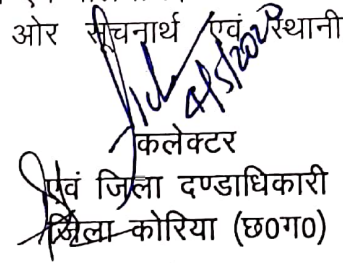 ओर सूचनार्थ एवं स्थानी
4/5/2020
कलेक्टर
एवं जिला दण्डाधिकारी
जिला कोरिया (छ0ग0)